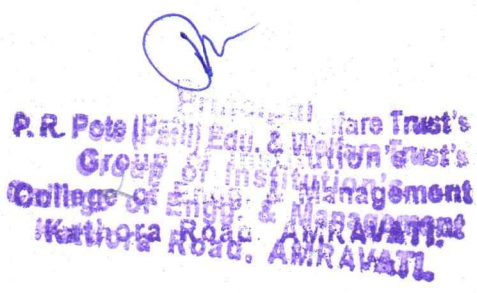 Principal
P. R. Pote (Patil) Edu. & Welfare Trust's
Group of Institution's
College of Engg. & Management
Kathora Road, AMRAVATI.